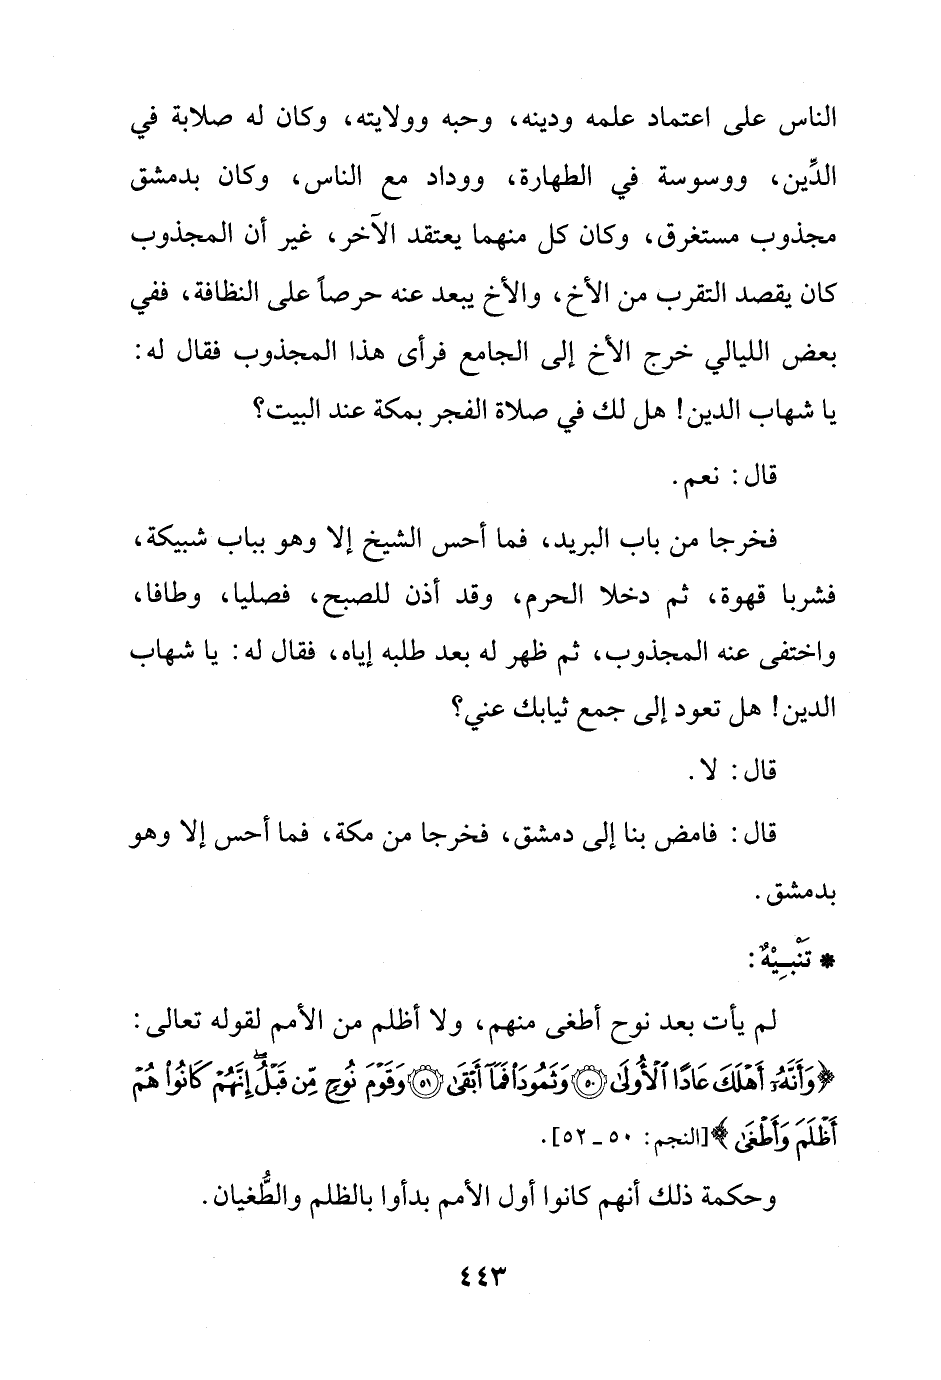 الناس على اعتماد علمه ودينه، وحبه وولايته، وكان له صلابة في
الدِّين، ووسوسة في الطهارة، ووداد مع الناس، وكان بدمشق
مجذوب مستغرق، وكان كل منهما يعتقد الآخر، غير أن المجذوب
كان يقصد التقرب من الأخ، والأخ يبعد عنه حرصاً على النظافة، ففي
بعض الليالي خرج الأخ إلى الجامع فرأى هذا المجذوب فقال له:
يا شهاب الدين! هل لك في صلاة الفجر بمكة عند البيت؟
قال: نعم.
فخرجا من باب البريد، فما أحس الشيخ إلا وهو بباب شبيكة،
فشربا قهوة، ثم دخلا الحرم، وقد أذن للصبح، فصليا، وطافا،
واختفى عنه المجذوب، ثم ظهر له بعد طلبه إياه، فقال له: يا شهاب
الدين! هل تعود إلى جمع ثيابك عني؟
قال: لا.
قال: فامض بنا إلى دمشق، فخرجا من مكة، فما أحس إلا وهو
بدمشق.
* تَنْبِيْهٌ:
لم يأت بعد نوح أطغى منهم، ولا أظلم من الأمم لقوله تعالى:
﴿وَأَنَّهُۥٓ أَهْلَكَ عَادًا ٱلْأُولَىٰ ۝٥٠ وَثَمُودَا۟ فَمَآ أَبْقَىٰ ۝٥١ وَقَوْمَ نُوحٍ مِّن قَبْلُ ۖ إِنَّهُمْ كَانُوا۟ هُمْ
أَظْلَمَ وَأَطْغَىٰ﴾ [النجم: ٥٠ ـ ٥٢].
وحكمة ذلك أنهم كانوا أول الأمم بدأوا بالظلم والطُّغيان.
٤٤٣